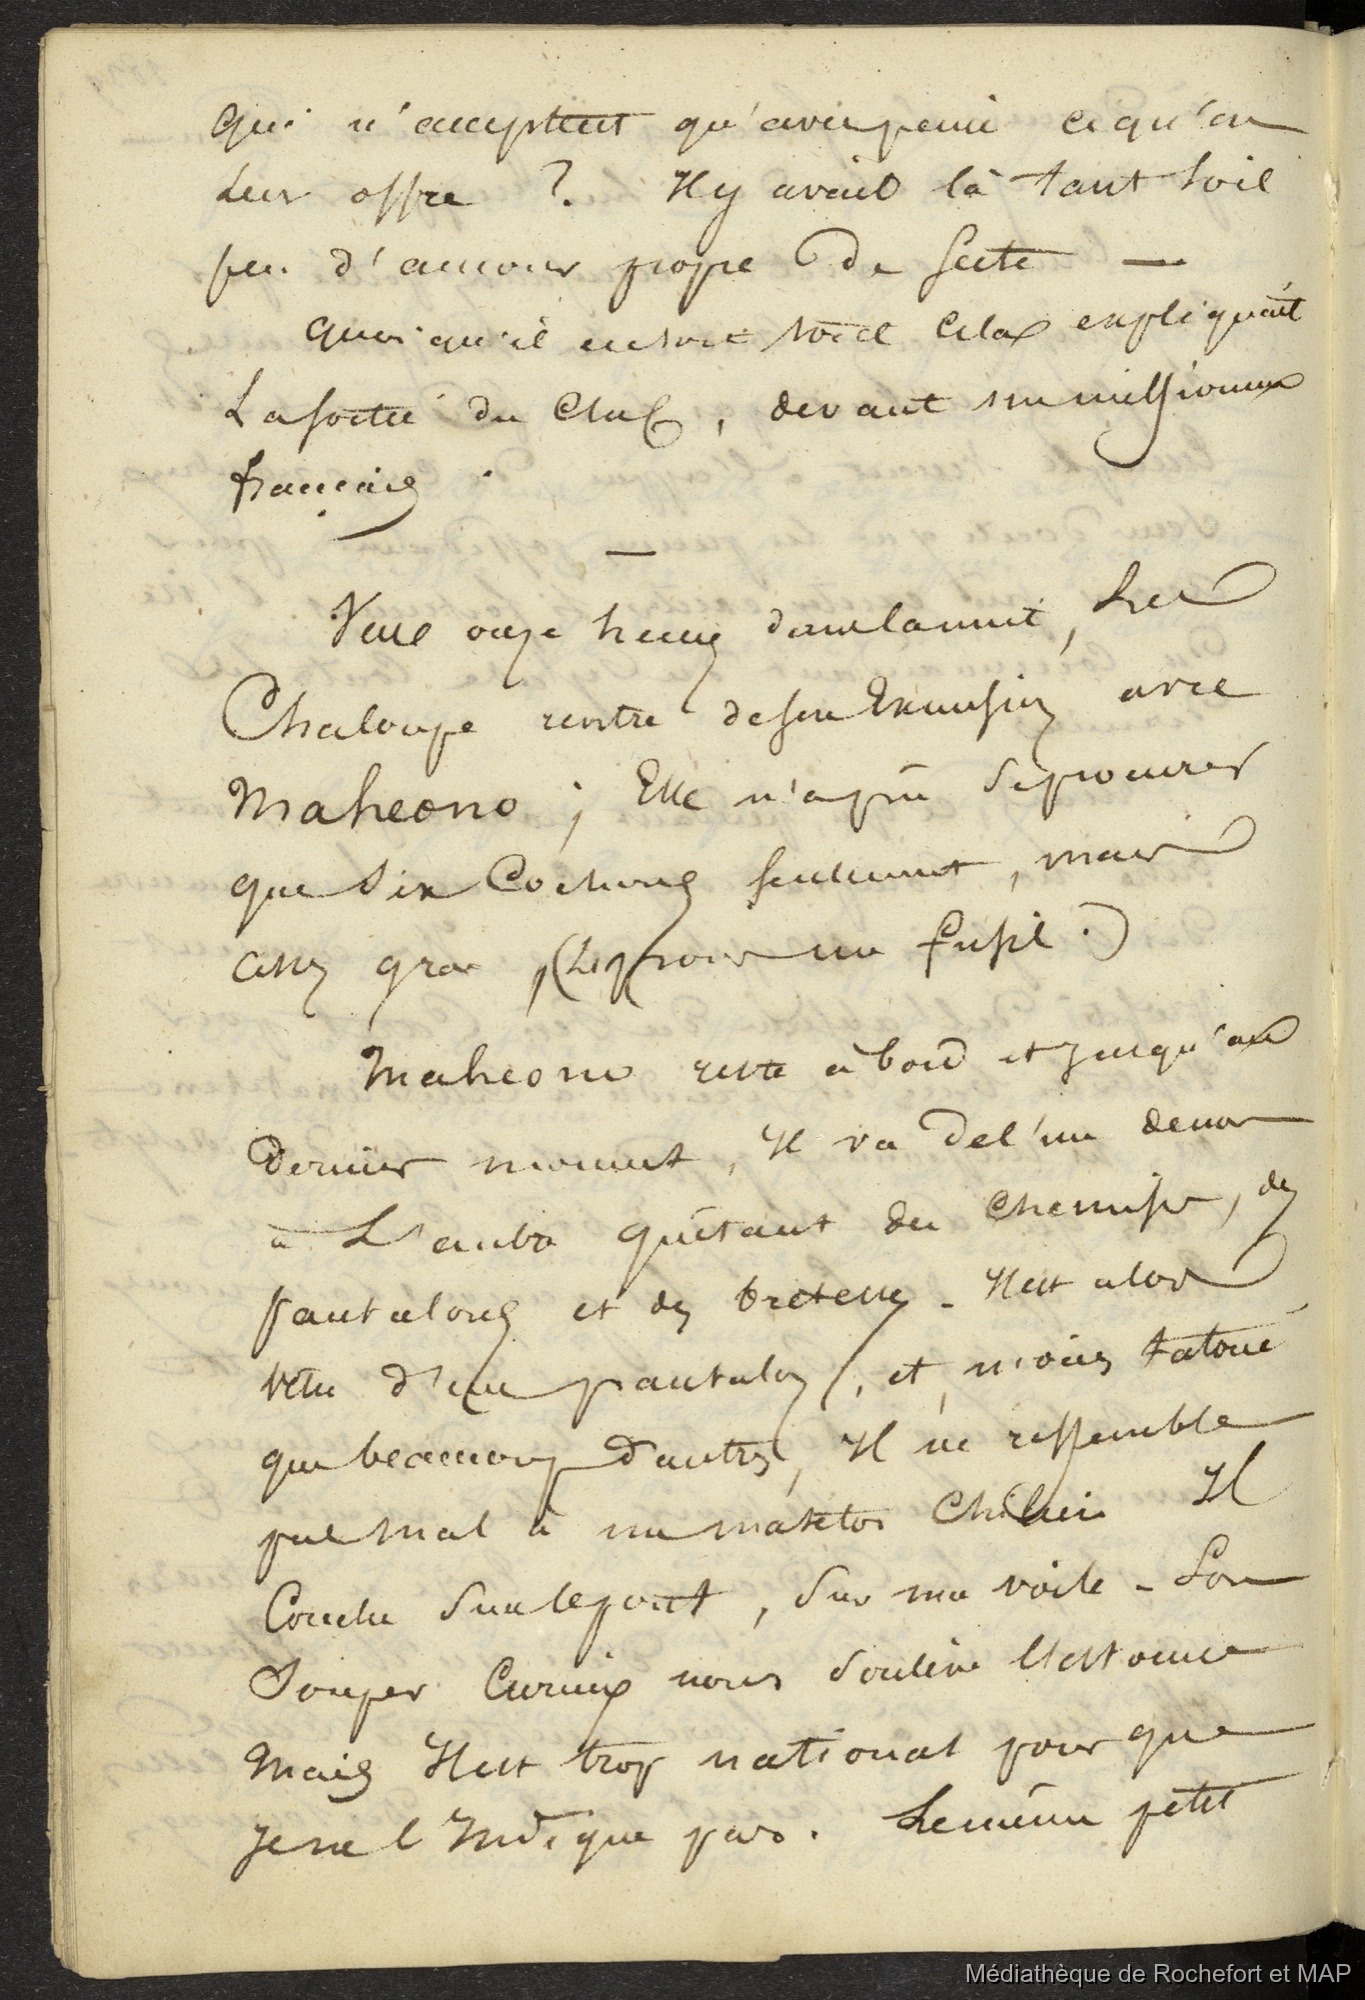 qui n'acceptent qu'avec peine ce qu'on
leur offre ? Il y avait là tant soit
peu d'amour propre de secte —
quoi qu'il en soit cela expliquait
La sortie du Chef, devant un missionnaire
français.
—
Vers onze heures dans la nuit, La
Chaloupe rentre de son Excursion avec
Maheono ; Elle n'a pû se procurer
que six Cochons seulement, mais
assez gros, (Le pour un fusil.)
Maheono reste à bord et jusqu'au
Dernier moment, Il va de l'un de nous
à L'autre quêtant des chemises, des
pantalons et des bretelles - Il est alors
vêtu d'un pantalon, et, moins tatoué
que beaucoup d'autres, Il ne ressemble
pas mal à un matelot Chilien Il
Couche sur le pont, sur une voile - Son
Souper nous soulève l'estomac
Mais Il est trop national pour que
Je ne l'Indique pas. Le même petit
Médiathèque de Rochefort et MAP